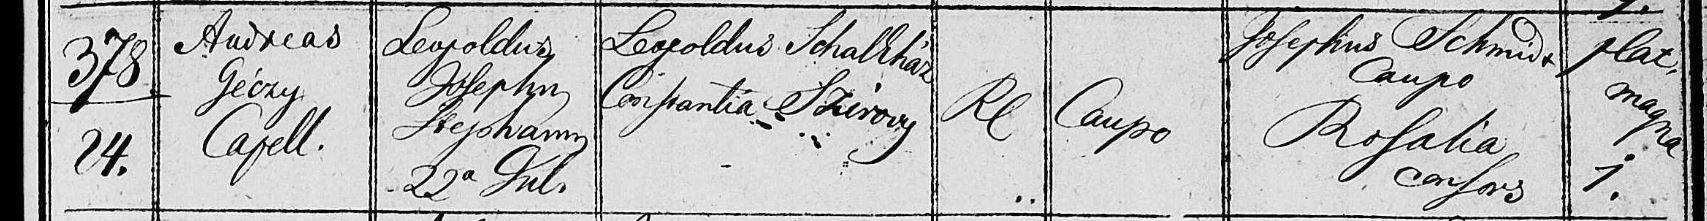 378
24.
Andreas
Géczy
Capell.
Leopoldus
Josephus
Stephanus
22ª Jul.
Leopoldus Schalkház
Constantia Szirovy
RC
Caupo
Josephus Schmidt
Caupo
Rosalia
consors
plat.
magna
1.